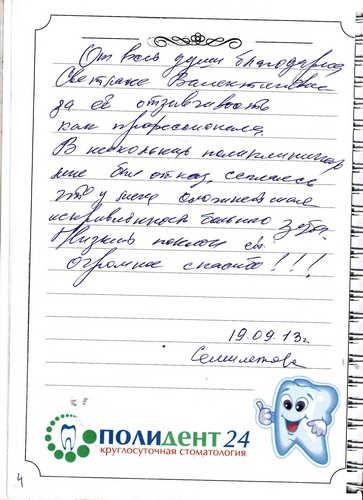 От всей души благодарю
Светлану Валентиновну
за её отзывчивость
как профессионала.
В нескольких поликлиниках
мне был отказ, ссылаясь
что у меня
искривленность больного зуба.
Низкий поклон ей
огромное спасибо!!!
19.09.13г.
4
ПОЛИДЕНТ 24
круглосуточная стоматология